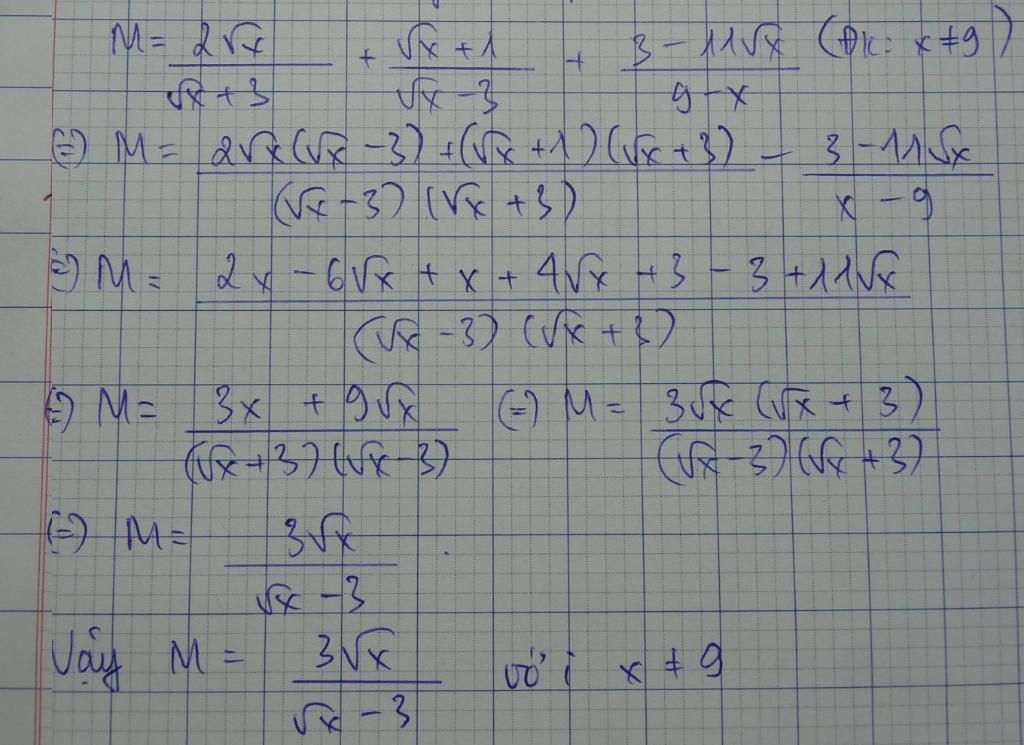 M = 2√x/(√x + 3) + (√x + 1)/(√x - 3) + (3 - 11√x)/(9 - x) (ĐK: x ≠ 9)
(=) M = (2√x(√x - 3) + (√x + 1)(√x + 3))/((√x - 3)(√x + 3)) - (3 - 11√x)/(x - 9)
(=) M = (2x - 6√x + x + 4√x + 3 - 3 + 11√x)/((√x - 3)(√x + 3))
(=) M = (3x + 9√x)/((√x + 3)(√x - 3)) (=) M = (3√x(√x + 3))/((√x - 3)(√x + 3))
(=) M = 3√x/(√x - 3)
Vậy M = 3√x/(√x - 3) với x ≠ 9